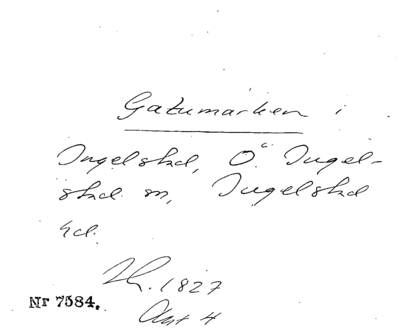 Gatumarken i
Ingelstad, Ö. Ingel-
stad sn, Ingelstad
hd.
1827
Nr 7584.
Akt 4